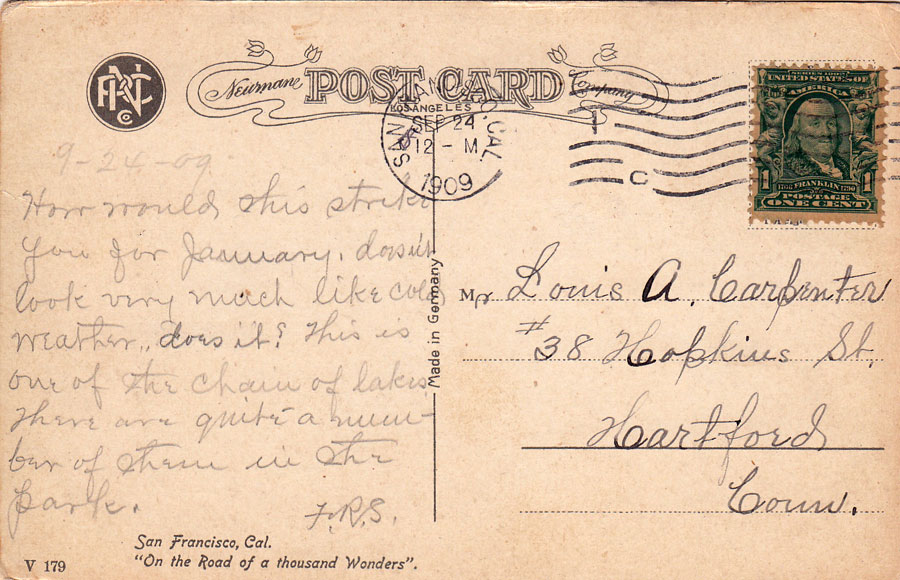 PNC
Co
Newmane POST CARD Company
LOS ANGELES
SAN FRANCISCO, CAL.
SEP 24
12 - M
1909
1
C
SERIES 1902
UNITED STATES OF
AMERICA
1706 FRANKLIN 1790
1 POSTAGE 1
ONE CENT
9-24-09
How would this strike
you for January. doesn't
look very much like cold
weather, does it? This is
one of the chain of lakes
There are quite a num-
ber of them in the
park.
F.R.S.
Made in Germany
Mr Louis A. Carpenter
#38 Hopkins St.
Hartford
Conn.
San Francisco, Cal.
"On the Road of a thousand Wonders".
V 179